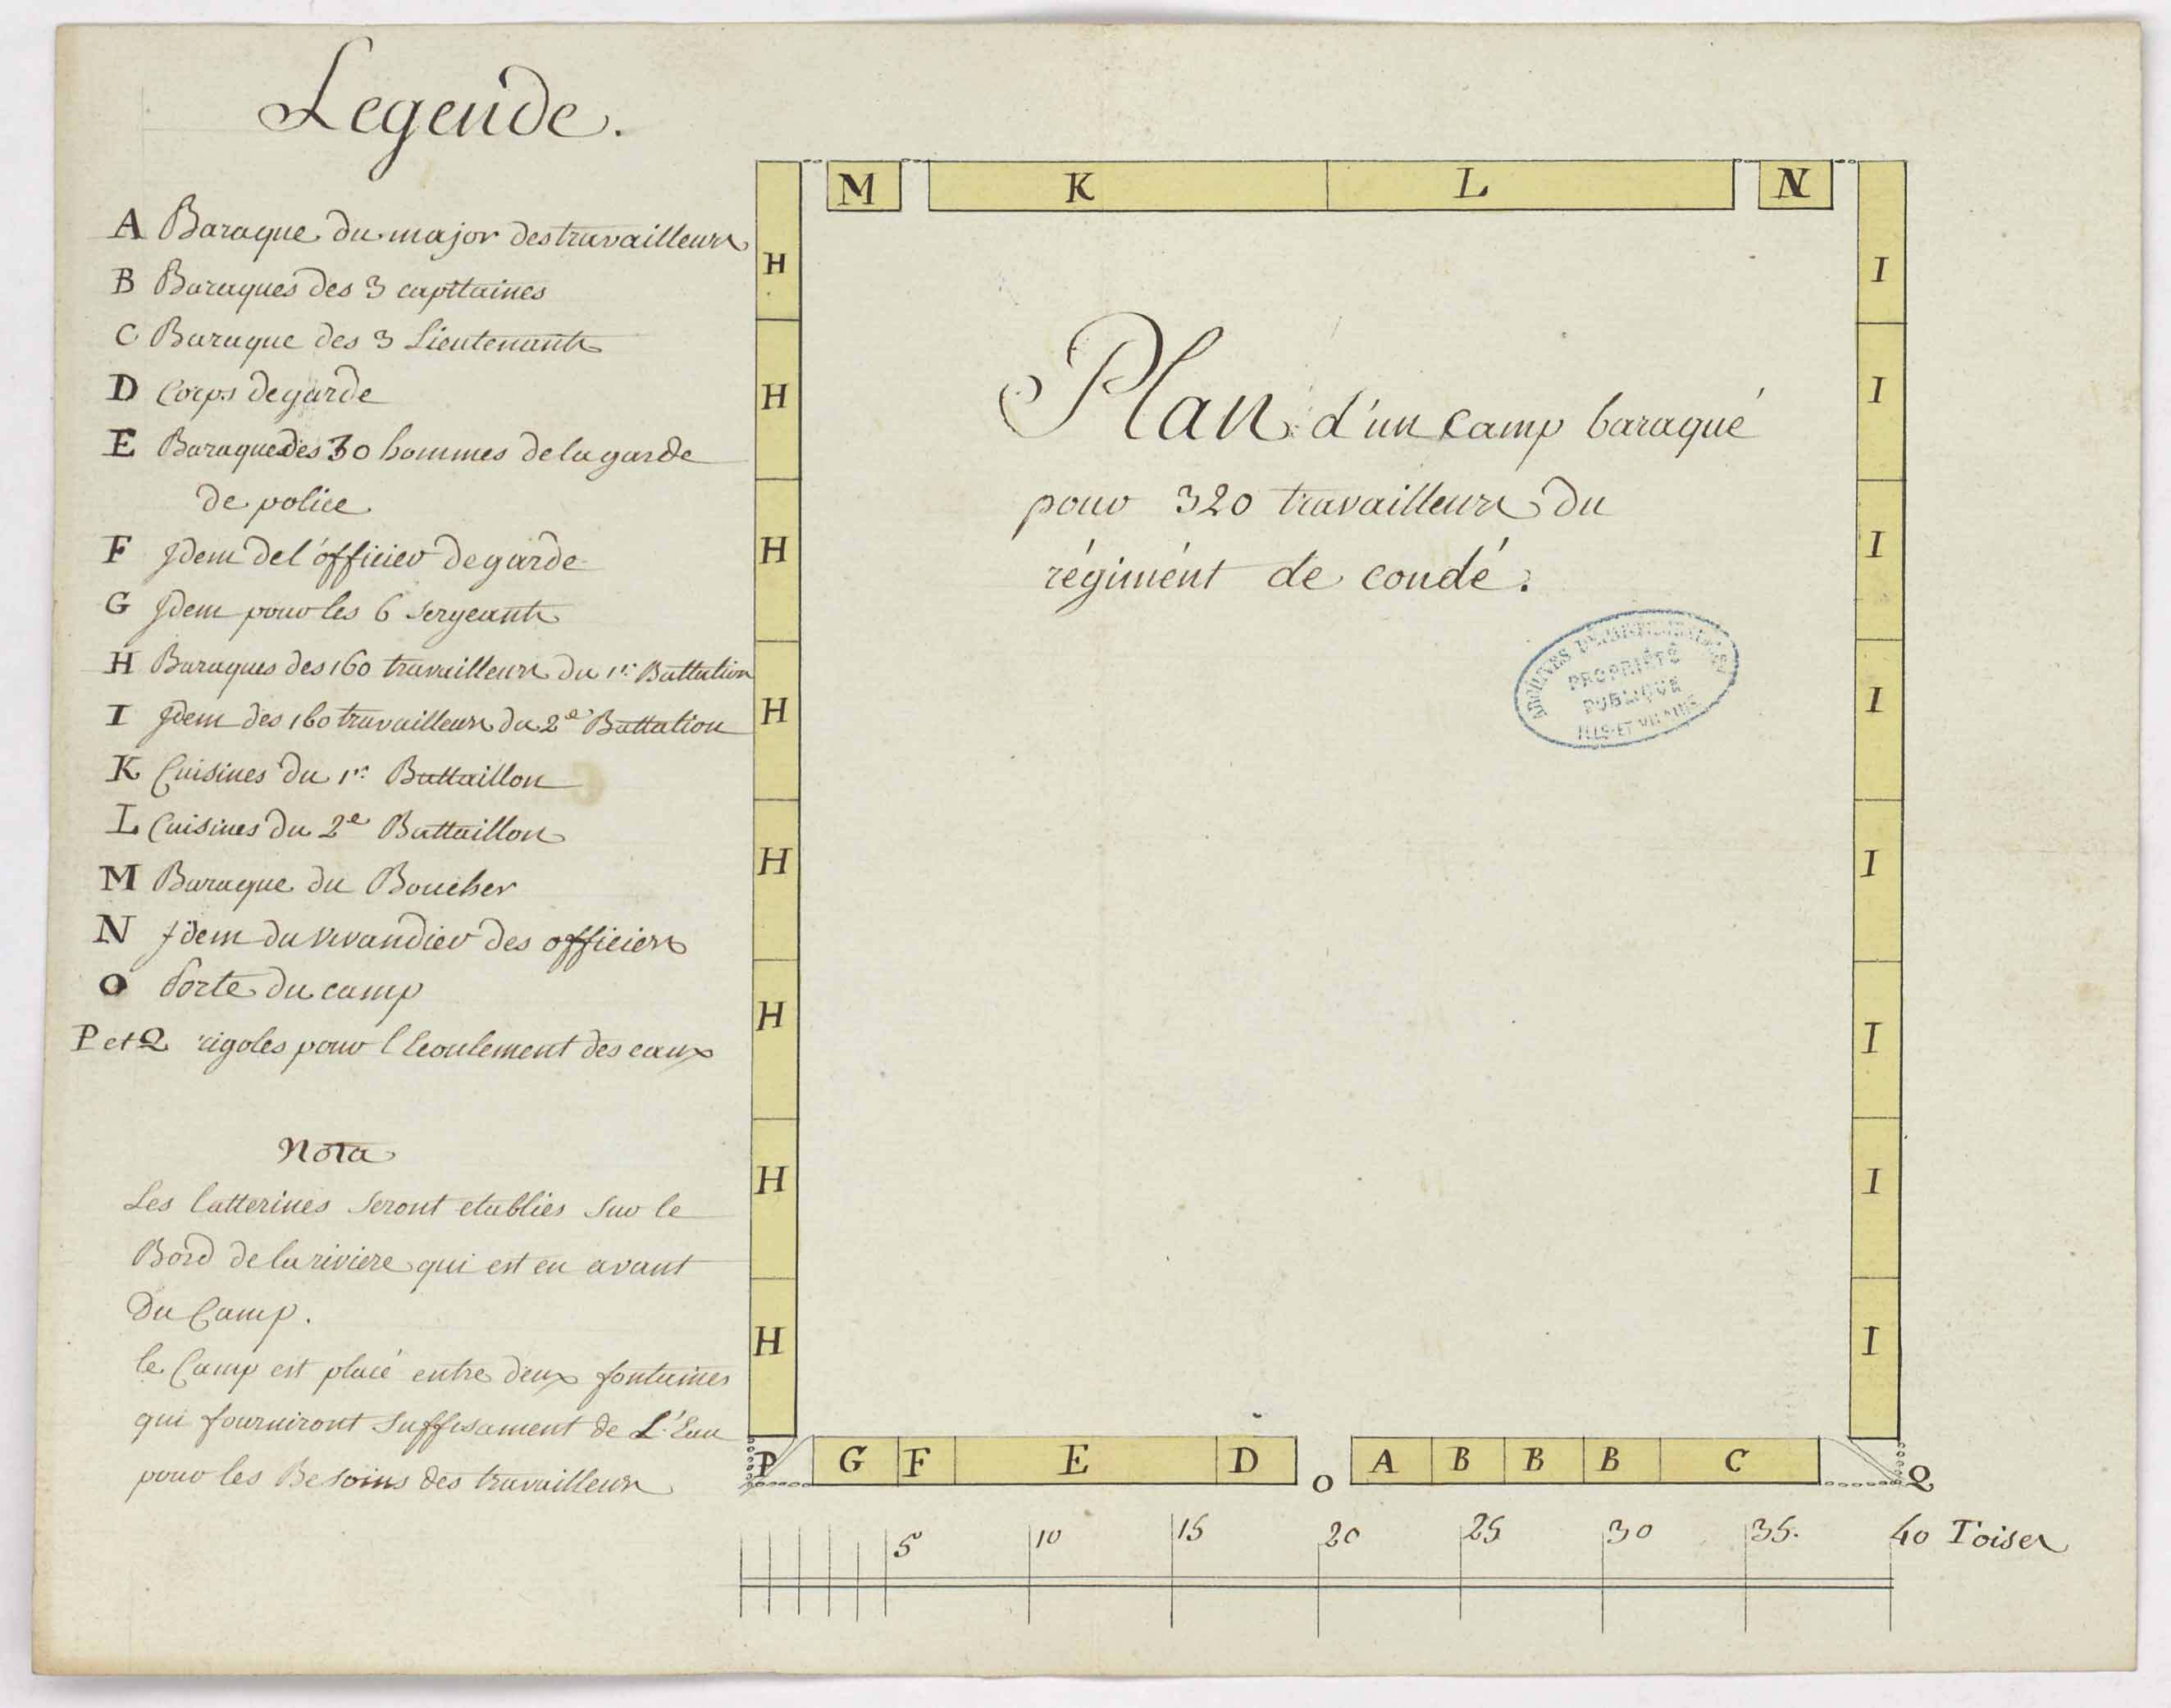 Legende.
A Baraque du major des travailleurs
B Baraques des 3 capitaines
C Baraque des 3 Lieutenants
D Corps de garde
E Baraque des 30 hommes de la garde
de police
F Jdem de l'officier de garde
G Jdem pour les 6 sergeants
H Baraques des 160 travailleurs du 1er Battation
I Jdem des 160 travailleurs du 2e Battation
K Cuisines du 1er Battaillon
L Cuisines du 2e Battaillon
M Baraque du Boucher
N Jdem du vivandier des officiers
O Porte du camp
P et Q rigoles pour l'Ecoulement des eaux
Nota
Les latterines seront etablies sur le
Bord de la riviere qui est en avant
Du Camp.
le Camp est placé entre deux fontaines
qui fourniront suffisament de L'Eau
pour les Besoins des travailleurs
M K L N
H
H
H
H
H
H
H
H
Plan d'un camp baraqué
pour 320 travailleurs du
régiment de condé.
ARCHIVES DÉPARTEMENTALES
PROPRIÉTÉ
PUBLIQUE
ILLE-ET-VILAINE
I
I
I
I
I
I
I
I
P G F E D O A B B B C Q
5 10 15 20 25 30 35. 40 Toises